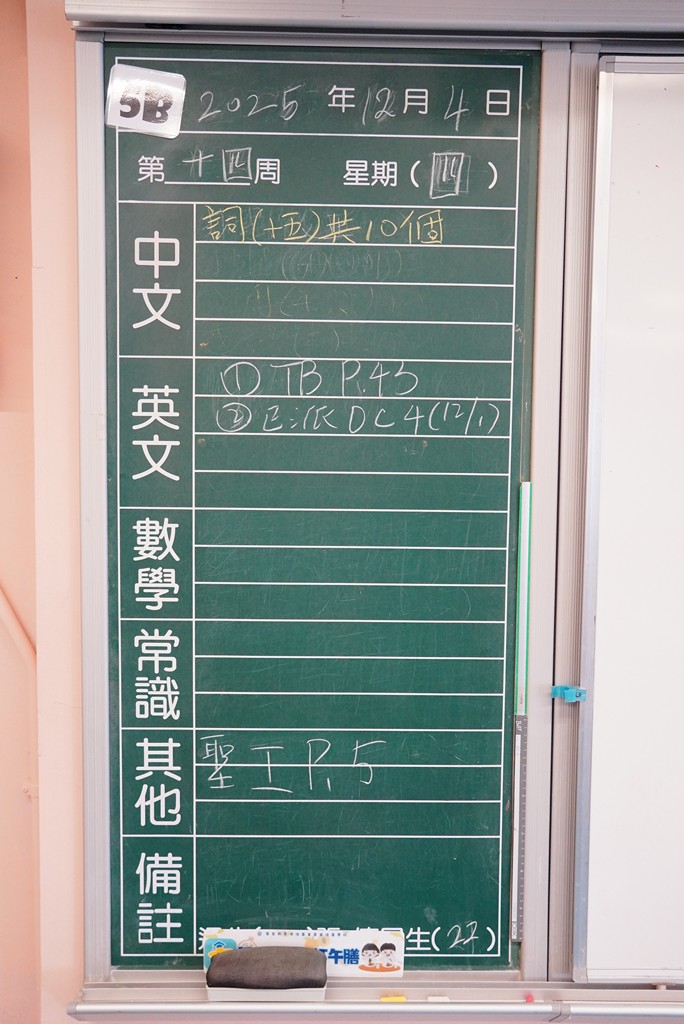 5B
2025 年 12 月 4 日
第 十四 周 星期 ( 四 )
中文
詞(十五)共10個
英文
① TB P.45
② 已派 DC 4 (12/1)
數學
常識
其他
聖工 P.5
備註
生( 27 )
午膳